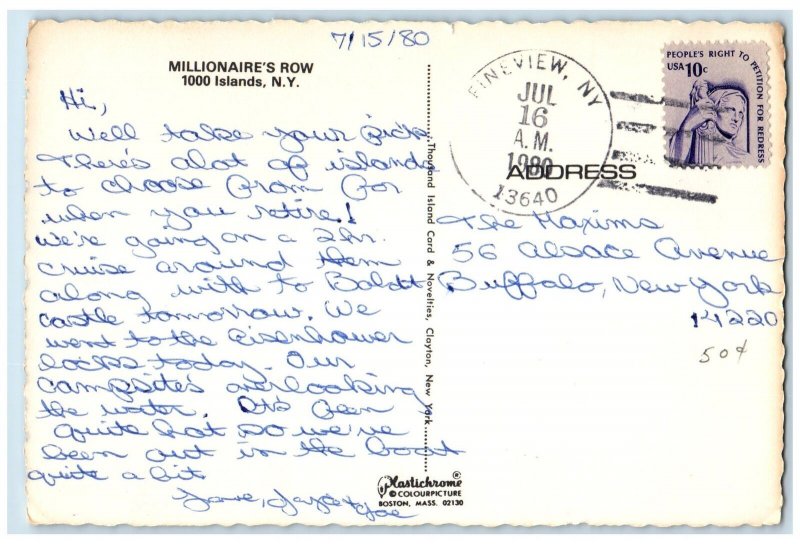 7/15/80
MILLIONAIRE'S ROW
1000 Islands, N.Y.
Hi,
Well take your pick.
There's alot of islands
to choose from for
when you retire!
We're going on a 2 hr.
cruise around them
along with to Boldt
castle tomorrow. We
went to the Eisenhower
locks today. Our
campsites overlooking
the water. It's been
quite hot so we've
been out in the boat
quite a bit.
Love, Joyce & Joe
Thousand Island Card & Novelties, Clayton, New York
Plastichrome®
© COLOURPICTURE
BOSTON, MASS. 02130
FINEVIEW, NY
JUL
16
A.M.
1980
13640
PEOPLE'S RIGHT TO PETITION FOR REDRESS
USA 10c
ADDRESS
The Maxims
56 Alsace Avenue
Buffalo, New York
14220
50¢